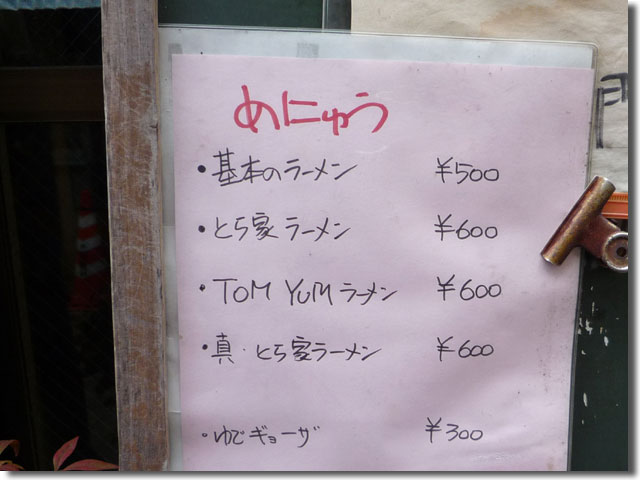 めにゅう
・基本のラーメン ¥500
・とら家ラーメン ¥600
・TOM YUMラーメン ¥600
・真・とら家ラーメン ¥600
・ゆでギョーザ ¥300